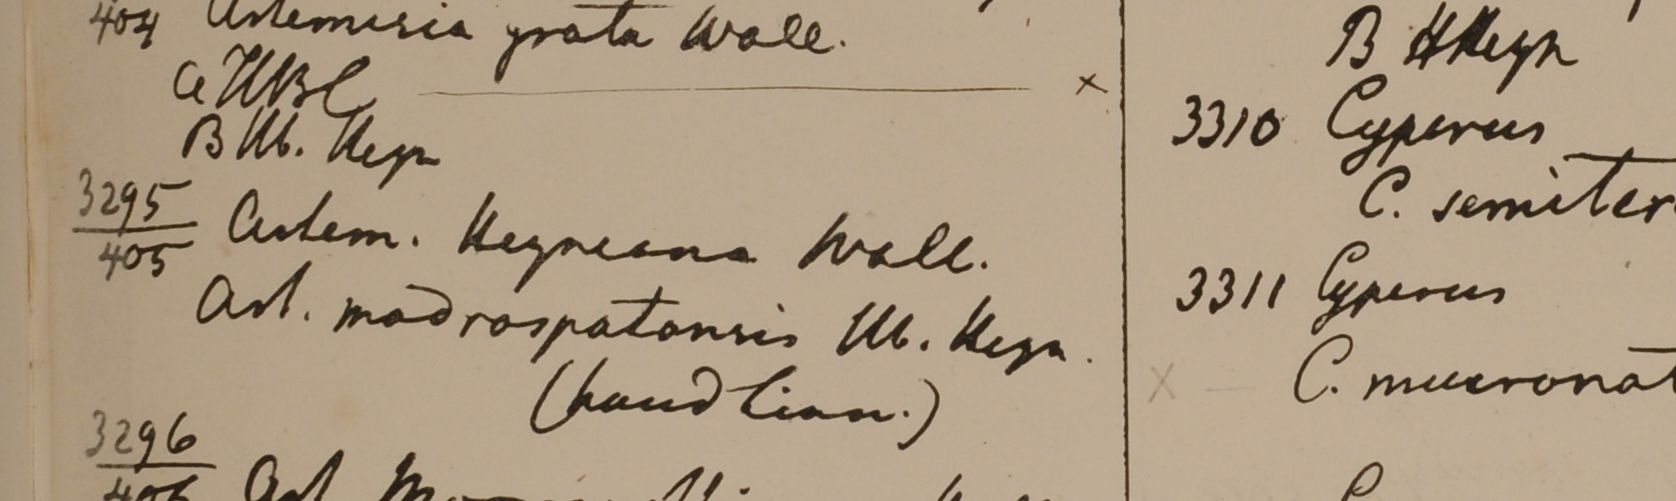 404 Artemisia grata Wall.
a HBC
B Hb. Heyn
3295
405 Artem. Heyneana Wall.
Art. madraspatansis Hb. Heyn.
(haud Linn.)
3296
406 Art
B HHeyn
3310 Cyperus
C. semiter
3311 Cyperus
C. mucronat